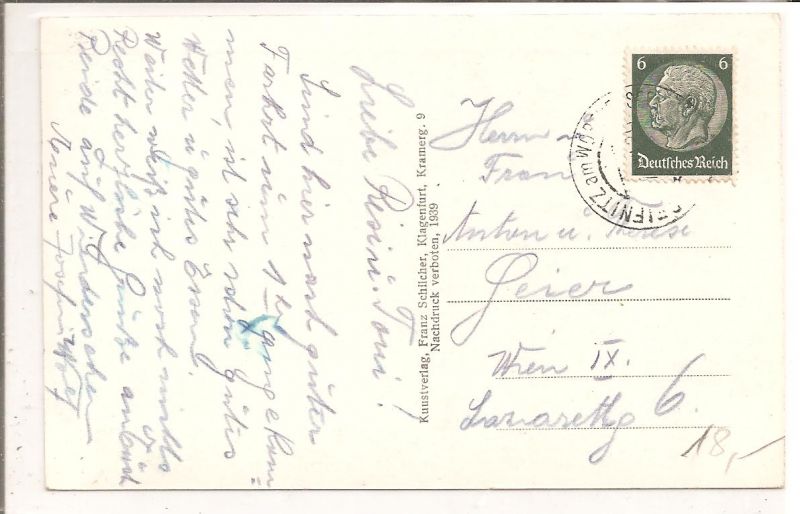 Liebe Resi u. Toni!
Sind hier nach guter
Fahrt um 1 Uhr angekom=
men, ist sehr schön gutes
Wetter u. gutes Essen.
Weiter weiß ich noch nichts
Recht herzliche Grüße an Euch
Beide auf Wiedersehen
Josefine Wolf
Kunstverlag, Franz Schilcher, Klagenfurt, Kramerg. 9
Nachdruck verboten, 1939
6 6
Deutsches Reich
Herrn u.
Frau
Anton u. Therese
Geier
Wien IX.
Lazarettg 6.
18,-